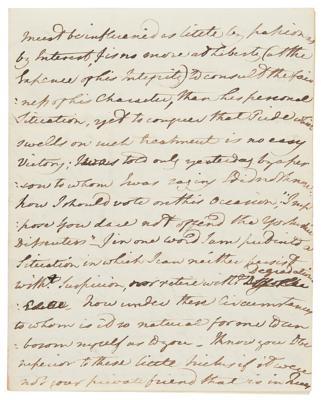 must be influenced as little by passion as
by Interest, is no more at Liberty (at the
Expence of his Integrity) to consult the fair-
ness of his Character, than his personal
Situation, yet to conquer that Pride which
swells on such treatment is no easy
Victory; I was told only yesterday by a per-
son to whom I was saying I did not know
how I should vote on this Occasion, "I sup-
pose you dare not offend the Yorkshire
Dissenters" In one word I am put into a
Situation in which I can neither persist
witht Suspicion, nor retire witht
degradation
now under these Circumstances
to whom is it so natural for me to un-
bosom myself as to you - I know you to be
superior to these little if it were
not your private friend that is in